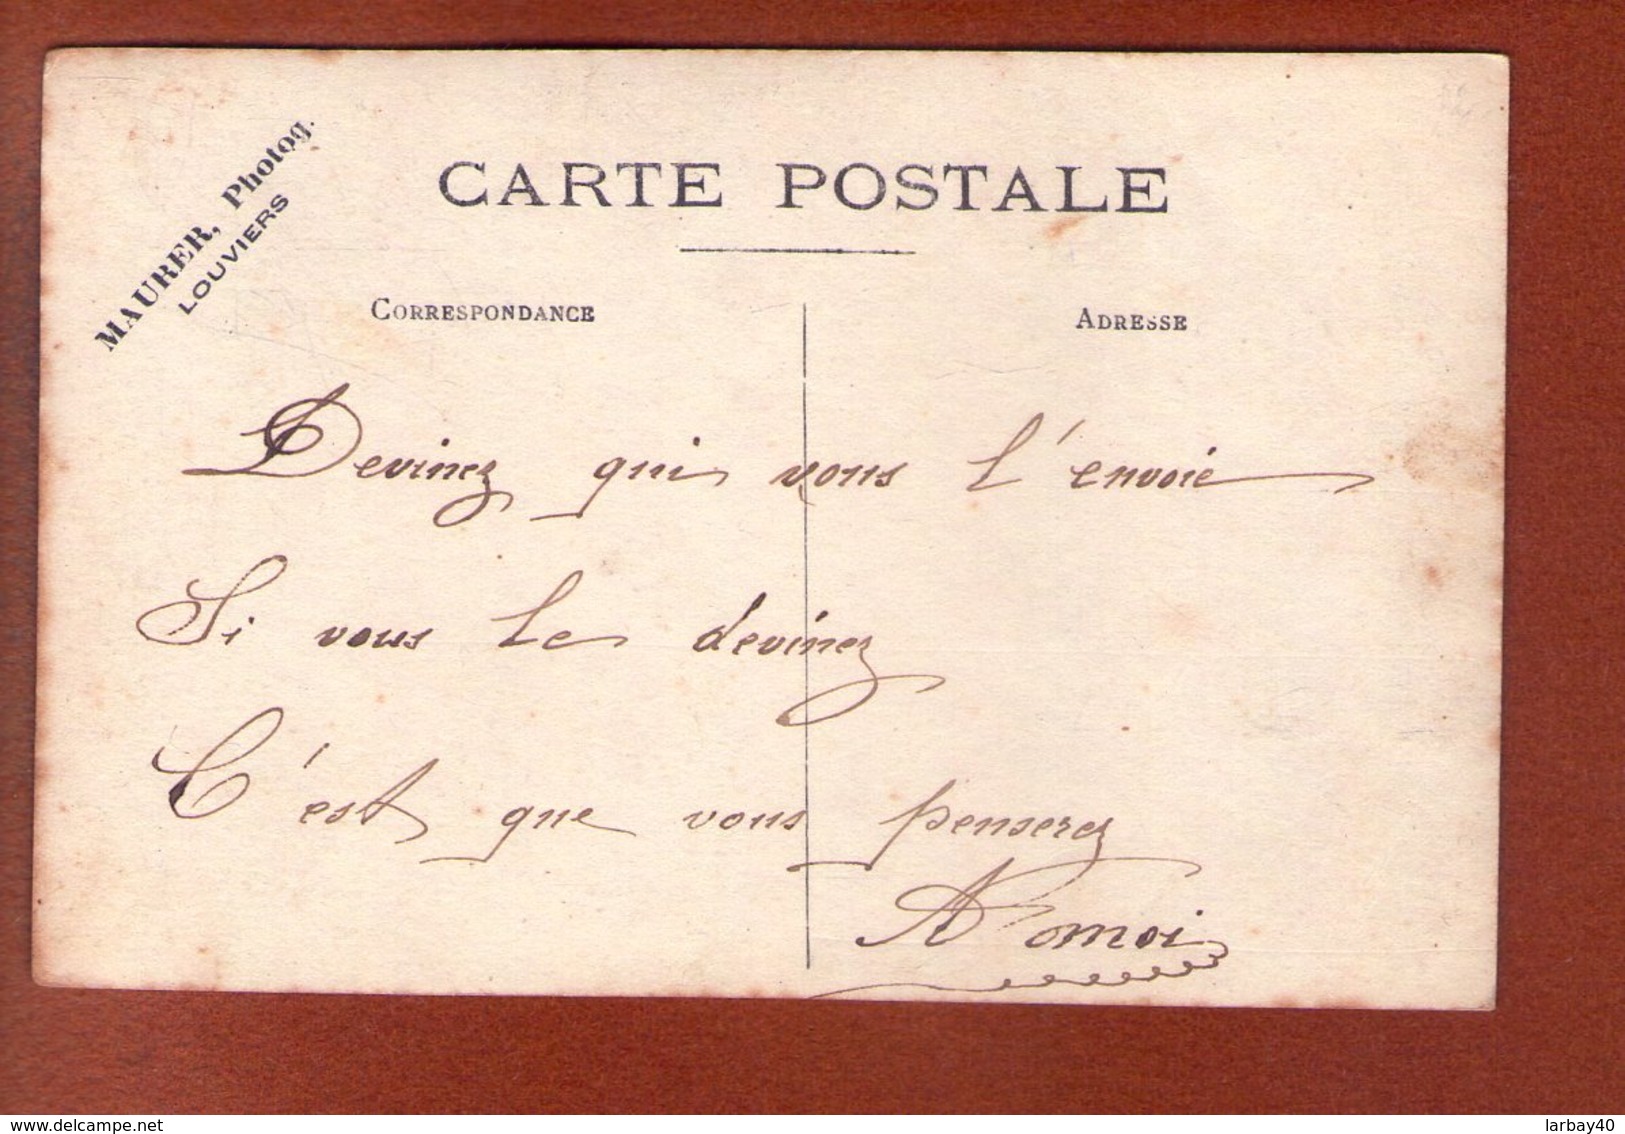 MAURER, Photog.
LOUVIERS
CARTE POSTALE
CORRESPONDANCE
ADRESSE
Devinez qui vous l'envoie
Si vous le devinez
C'est que vous penserez
A moi
delcampe.net
larbay40